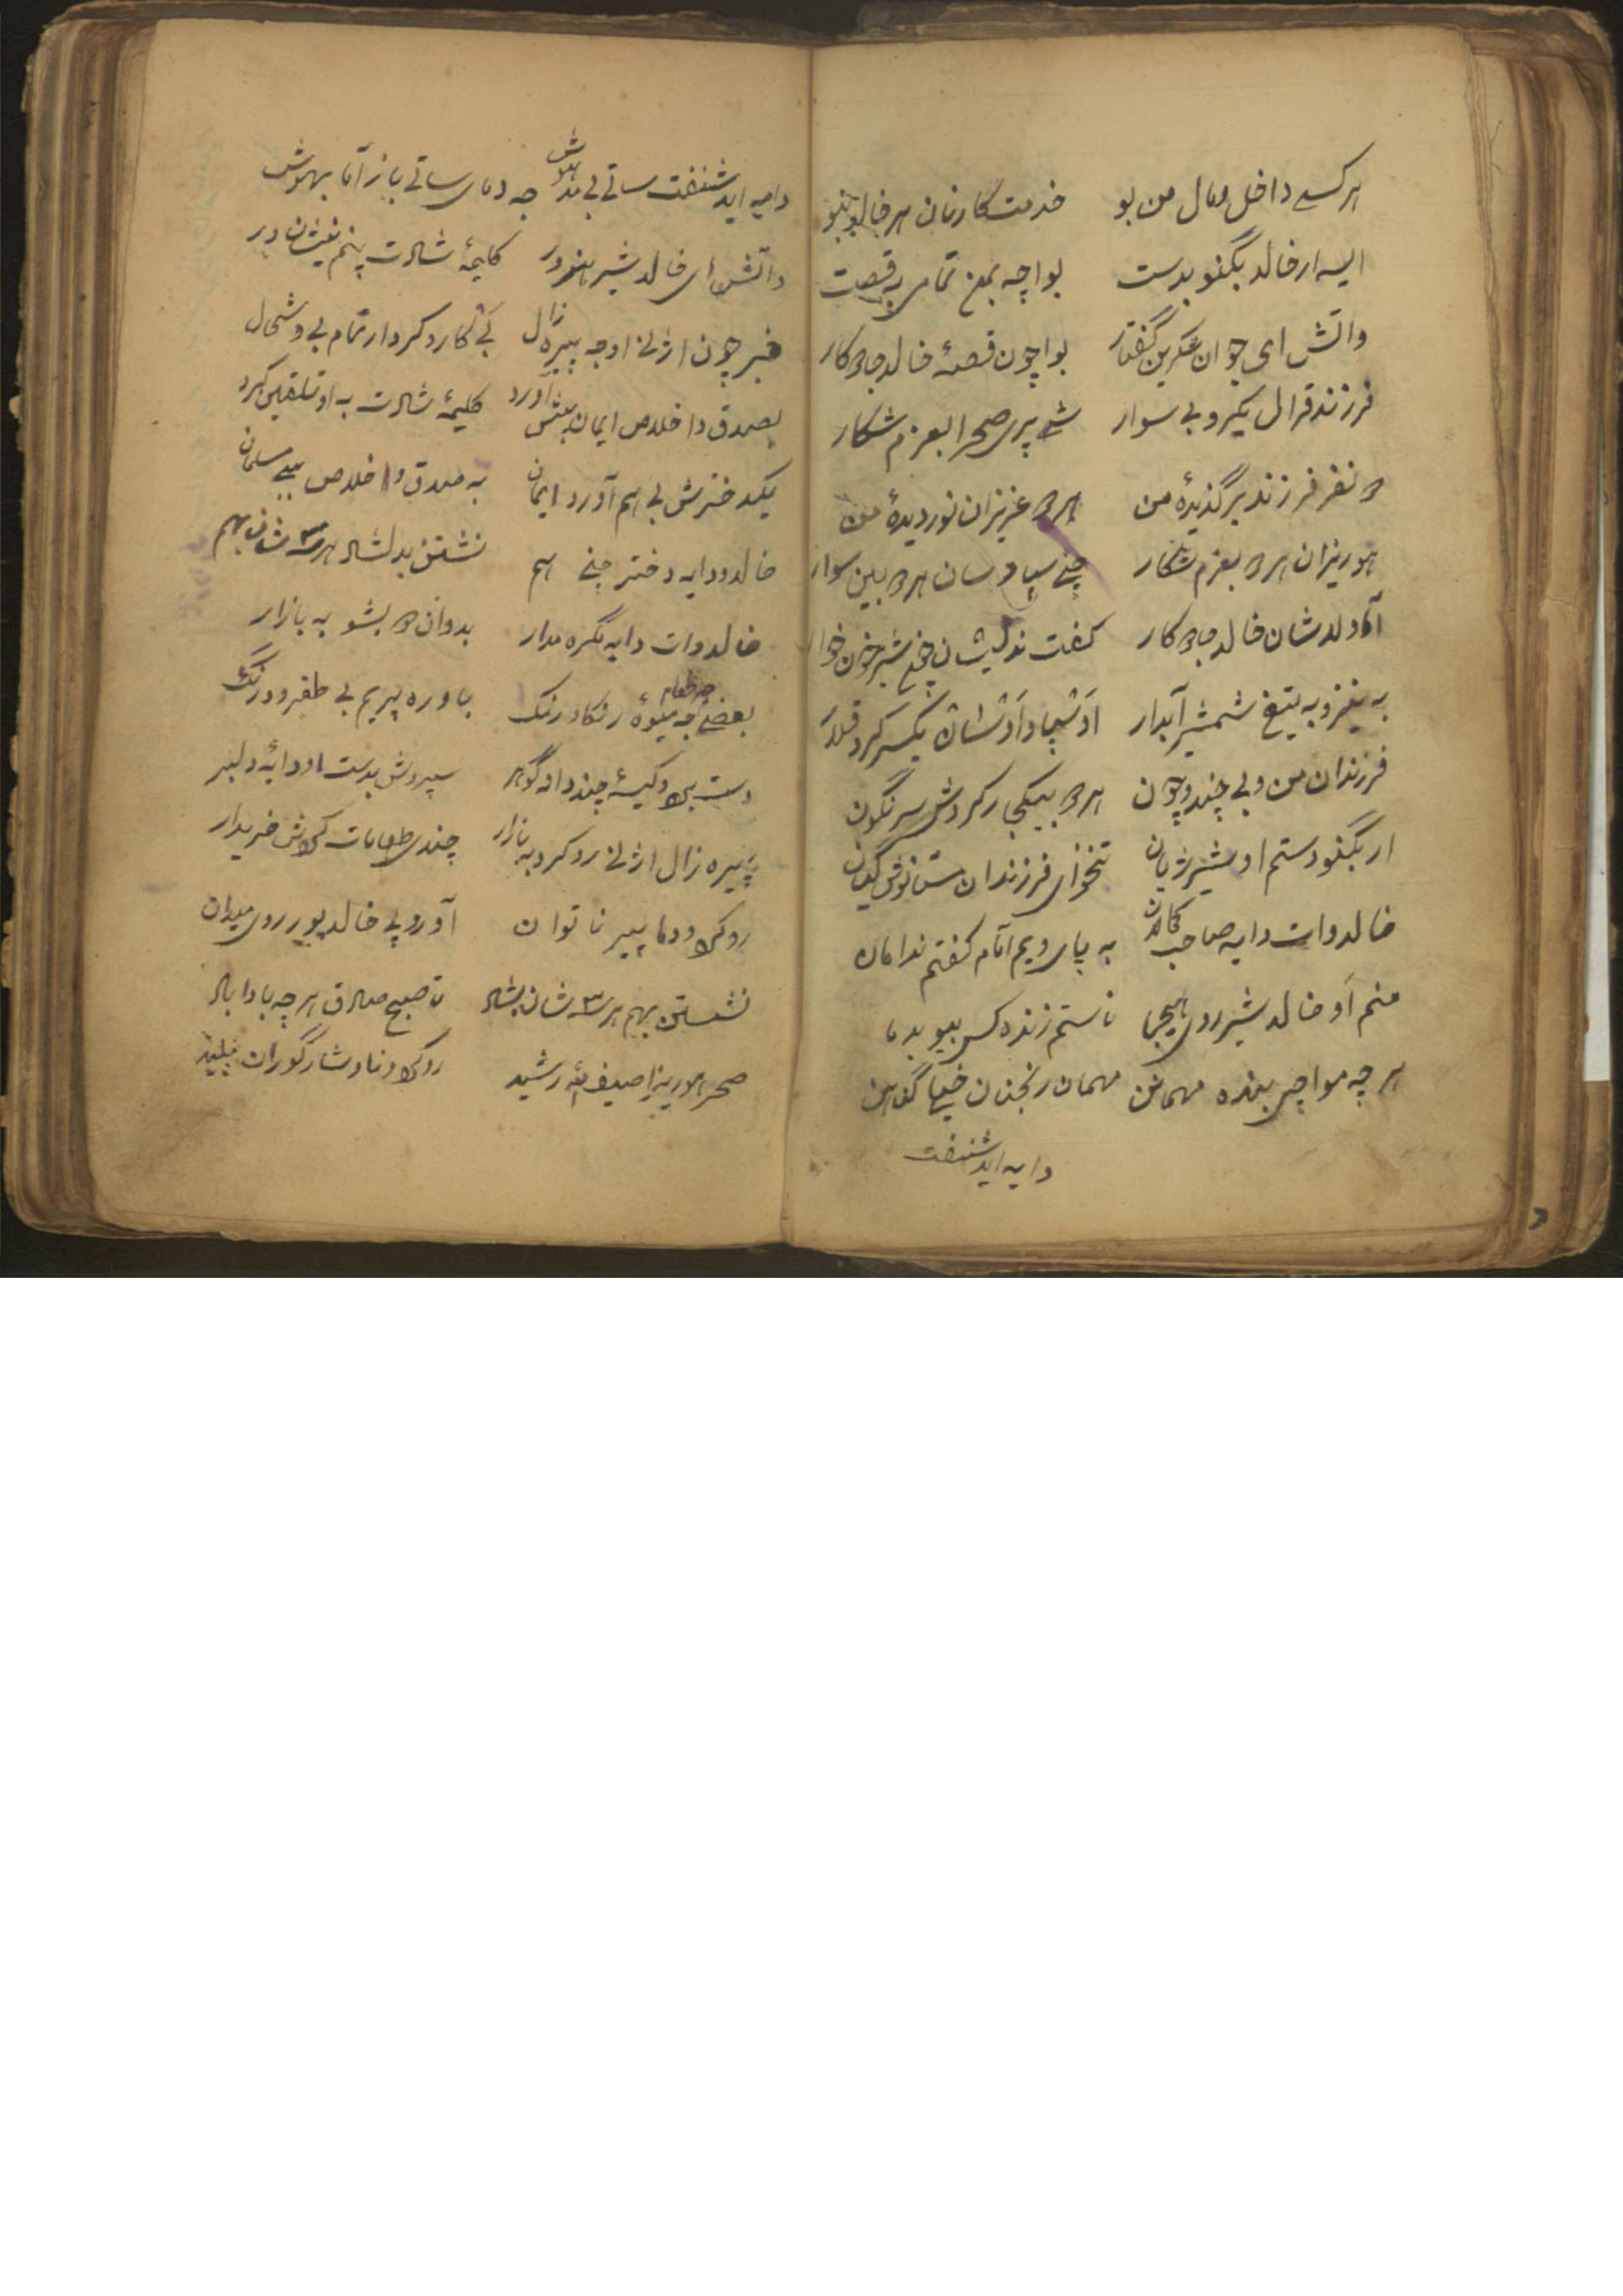 هر کسی داخل مال من بو خدمت کارنان هر خالو بنو
ایسه ار خالد بگنو بدست بواچه بمن تمامی به قصت
واتش ای جوان شکرین گفتار بواچون قصهٔ خالد جادوکار
فرزند قرال یکیرو بی سوار شی پری صحرا بعزم شکار
دو نفر فرزند برگذیدهٔ من هر دو عزیزان نور دیدهٔ من
هوریزان هر دو بعزم شکار چنی سپا وسان هر دو بین سوار
آمادلدشان خالد جادوکار کفت ندلیشان چنی شیر خون خوار
به نیزه به تیغ شمشیر آبدار او سپا و او شان یکسر کرد
فرزندان من و بی چند و چون هر دو بیکجار کردش سرنگون
ار بگنو دستم او شیر ژیان تخوای فرزندان مستانوش گیان
خالد وات دایه صاحب کمالان به پای ویم آنام کفتم ندامان
منم او خالد شیر روی هیجا ناستم زنده کس بیو بدما
هر چه مواچی بنده مهمانن مهمان رنجنان خیلی گناهن
دایه اید شنفت
دایه اید شنفت ساتی بی مدهوش جه دمای ساتی باز آما بهوش
واتش ای خالد شیر هنرور کلیمهٔ شادت پنم نیشان در
خبر چون اژنی او جه پیره زال بی کار و کردار تمام بی و شحال
بصدق و اخلاص ایمان پیش آورد کلیمهٔ شادت به او تلقین کرد
یکدخترش بی هم آورد ایمان به صدق و اخلاص بیی مسلمان
خالد و دایه دختر چنی هم نشتن بدلشاد هر سه شان بهم
خالد وات دایه مگره مدار بدوان دو بشو به بازار
بعضی جه طعام جه میوهٔ رنگاورنگ باوره پریم بی طفره و درنگ
دست برد و کیسهٔ چند دانه گوهر سپردش بدست او دایهٔ دلبر
پیره زال اژنی رو کرد به بازار چندی طعامات کردش خریدار
رو کرد و دما پیر ناتوان آورد پی خالد پور روی میدان
نشستن بهم هر سه شان بشاد تا صبح صادق هر چه بادا باد
صحر هوریزا ضیغم رشید رو کرد و نا و شار گوران پلید